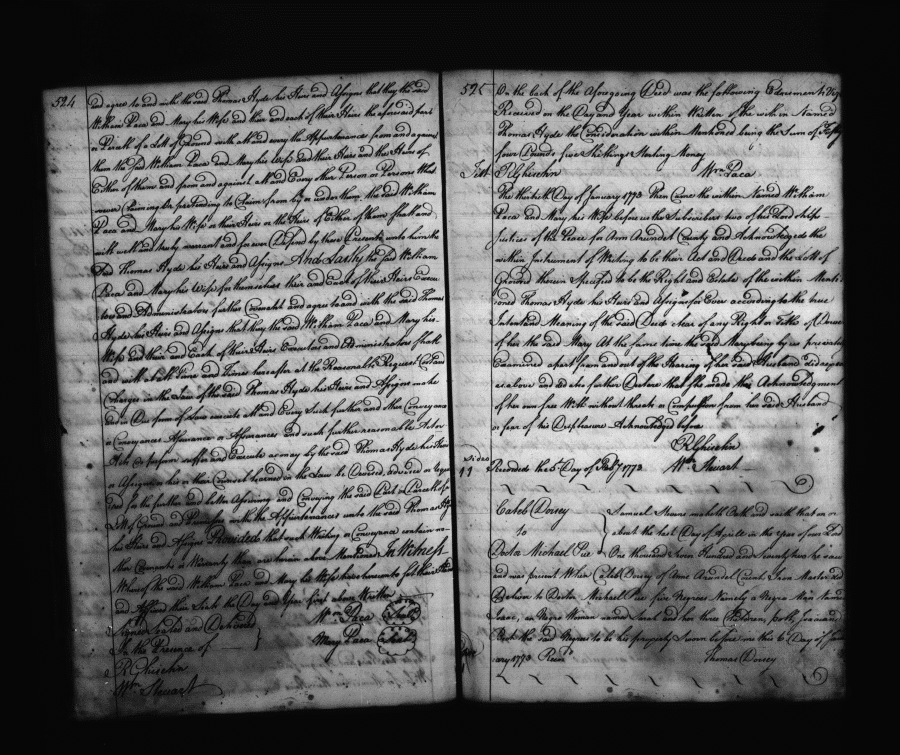 524
and agree to and with the said Thomas Hyde his Heirs and Assigns that they the said
William Paca and Mary his Wife and their and each of their Heirs the aforesaid part
or Parcell of a Lott of Ground with all and every the Appurtenances from and against
them the said William Paca and Mary his Wife and their Heirs and the Heirs of
Either of them and from and against all and Every other Person or Persons What
soever Claiming or pretending to Claim from by or under them the said William
Paca and Mary his Wife or their Heirs or the Heirs of Either of them shall and
will well and truly warrant and forever Defend by these Presents unto him the
said Thomas Hyde his Heirs and Assigns And Lastly the said William
Paca and Mary his Wife for themselves their and Each of their Heirs Execu
tors and Administrators further Covenant and agree to and with the said Thomas
Hyde his Heirs and Assigns that they the said William Paca and Mary his
Wife and their and Each of their Heirs Executors and Administrators shall
and will at all times and Times hereafter at the Reasonable Request Cost and
Charges in the Law of the said Thomas Hyde his Heirs and Assigns make
and in Due form of Law execute all and Every such further and other Conveyance
or Conveyances Assurance or Assurances and such further reasonable Act or
Acts do perform suffer and Execute as may by the said Thomas Hyde his Heirs
or Assigns or his or their Council learned in the Law be Devised advised or requi
red for the further and better Assuring and Conveying the said Part or Parcell of a
Lott of Ground and Premises with the Appurtenances unto the said Thomas Hyde
his Heirs and Assigns Provided that such Writing or Conveyance contain no
other Covenants or Warranty than are herein above Mentioned In Witness
Whereof the said William Paca and Mary his Wife have hereunto set their Hands
and Affixed their Seals the Day and Year first above Written
Signed Sealed and Delivered
In the Presence of
Wm Paca Seal
Mary Paca Seal
R Ghiselin
Wm Steuart
525
On the back of the Aforegoing Deed was the following Endorsement Viz
Received on the Day and Year within Written of the within Named
Thomas Hyde the Consideration within Mentioned being the Sum of
four Pounds five Shillings Sterling Money
Test R Ghiselin Wm Paca
The thirtieth Day of January 1773 Then Came the within Named William
Paca and Mary his Wife before us the Subscribers two of his Lordships
Justices of the Peace for Ann Arundel County and Acknowledged the
within Instrument of Writing to be their Act and Deed and the Lott of
Ground therein Specified to be the Right and Estate of the within Menti
oned Thomas Hyde his Heirs and Assigns for Ever according to the true
Intent and Meaning of the said Deed clear of any Right or Title of Dower
of her the said Mary At the same time the said Mary being by us privately
Examined apart from and out of the Hearing of her said Husband
as above and did further Declare that she made this Acknowledgment
of her own free Will without threats or Compulsion from her said Husband
or fear of his Displeasure Acknowledged before
R Ghiselin
Wm Steuart
Recorded the 5th Day of Feby 1773
Caleb Dorsey
to
Doctor Michael Pue
Samuel Howns maketh Oath and saith that on or
about the last Day of Aprill in the Year of our Lord
One thousand Seven Hundred and Seventy two he saw
and was present When Caleb Dorsey of Anne Arundel County Iron Master did
Deliver to Doctor Michael Pue five Negroes Namely a Negro Man named
Isaac, a Negro Woman named Sarah and her three Children,
that the said Negroes to be his property Sworn before me this 6 Day of
ary 1773
Thomas Dorsey